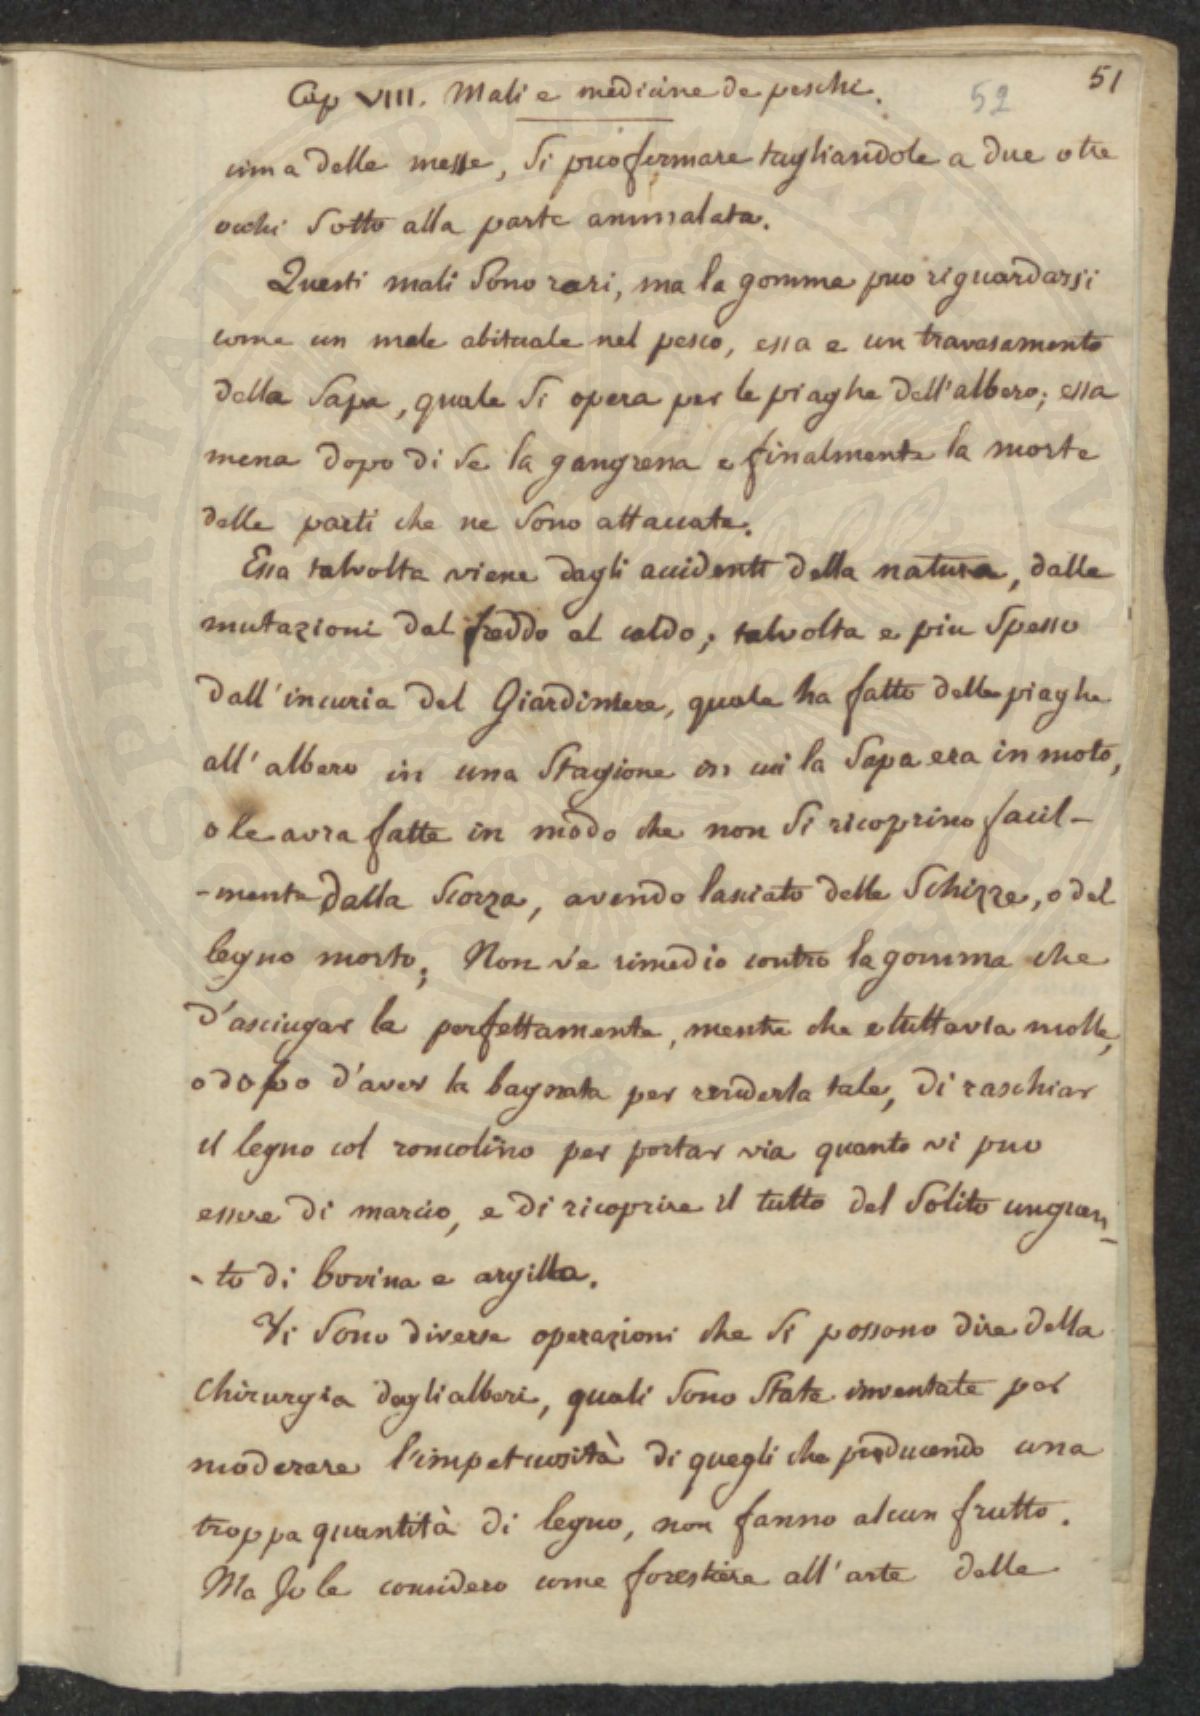 51
52
Cap VIII. Mali e medicine de peschi.
cima delle messe, si puo fermare tagliandole a due o tre
occhi sotto alla parte ammalata.
Questi mali sono rari, ma la gomma puo riguardarsi
come un male abituale nel pesco, essa e un travasamento
della sapa, quale si opera per le piaghe dell'albero; essa
mena dopo di se la gangrena e finalmente la morte
delle parti che ne sono attaccate.
Essa talvolta viene dagli accidenti della natura, dalle
mutazioni dal freddo al caldo; talvolta e piu spesso
dall'incuria del Giardiniere, quale ha fatto delle piaghe
all'albero in una stagione in cui la sapa era in moto,
o le avra fatte in modo che non si ricoprino facil-
-mente dalla scorza, avendo lasciato delle schizze, o del
legno morto; Non v'e rimedio contro la gomma che
d'asciugar la perfettamente, mentre che e tuttavia molle,
o dopo d'aver la bagnata per renderla tale, di raschiar
il legno col roncolino per portar via quanto vi puo
essere di marcio, e di ricoprire il tutto del solito unguen-
-to di bovina e argilla.
Vi sono diverse operazioni che si possono dire della
Chirurgia degli alberi, quali sono state inventate per
moderare l'impetuosità di quegli che producendo una
troppa quantità di legno, non fanno alcun frutto.
Ma Jo le considero come forestiere all'arte delle
SPERITAT PUBLICA